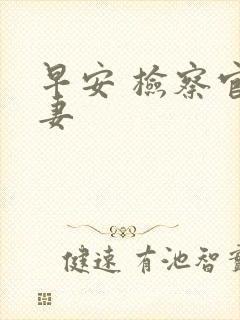 早安 檢察官
妻
健速 有池智實